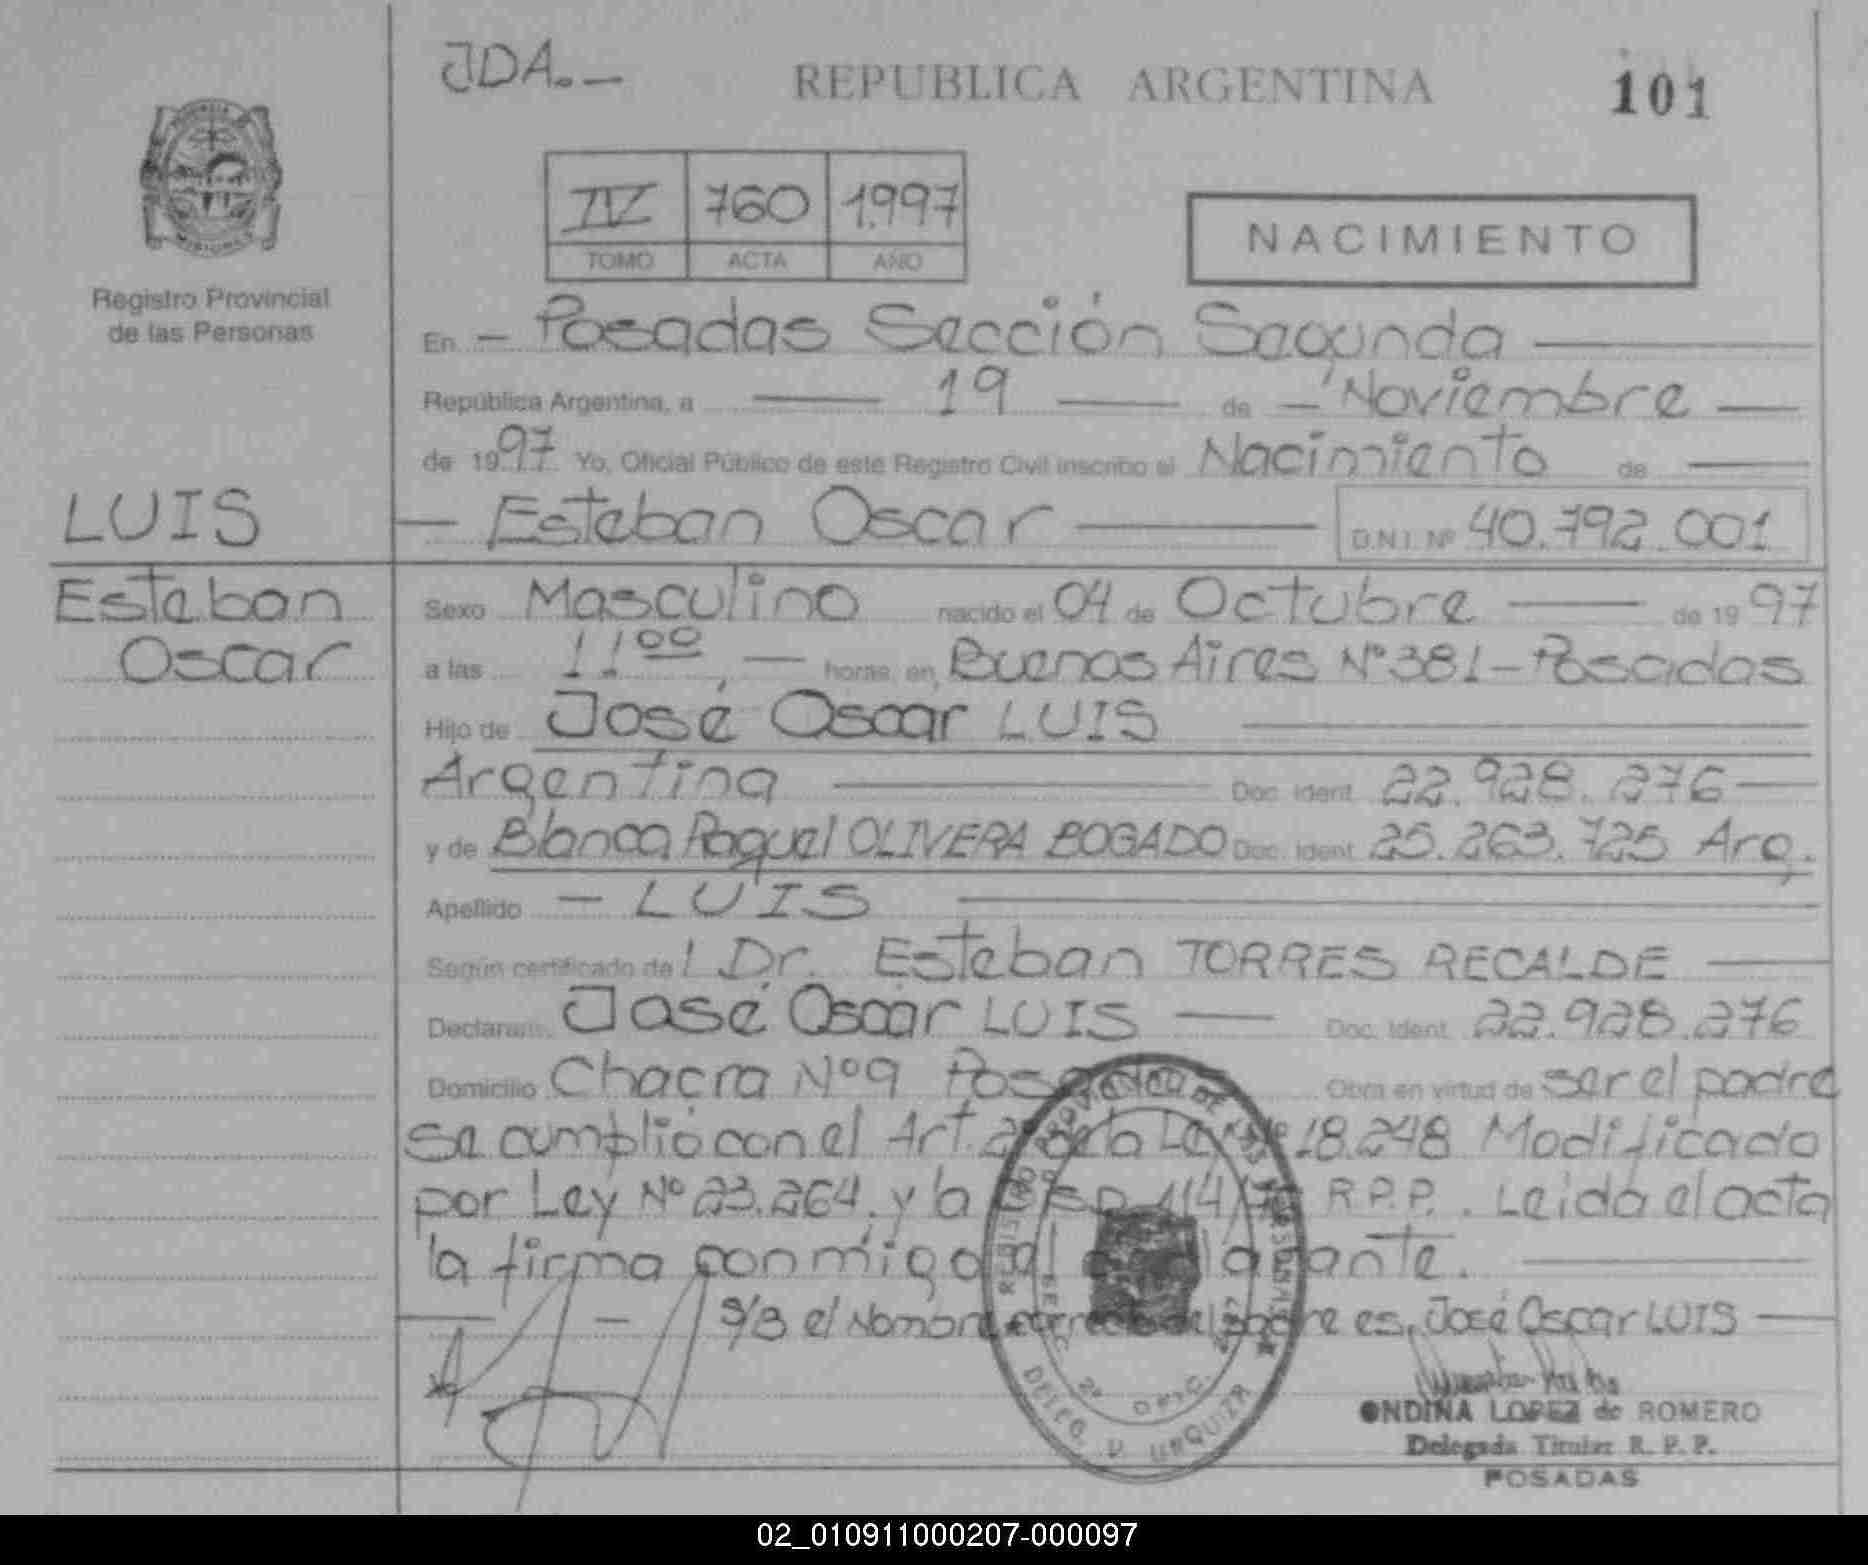 JDA.-
REPUBLICA ARGENTINA
101
IV 760 1.997
TOMO ACTA AÑO
NACIMIENTO
Registro Provincial
de las Personas
En - Posadas Sección Segunda
República Argentina, a 19 de - Noviembre
de 1997 Yo, Oficial Público de este Registro Civil inscribo el Nacimiento de
LUIS
- Esteban Oscar D.N.I. Nº 40.792.001
Esteban
Oscar
Sexo Masculino nacido el 04 de Octubre de 1997
a las 11 00, - horas en, Buenos Aires Nº 381 - Posadas
Hijo de José Oscar LUIS
Argentina Doc. Ident. 22.928.276
y de Blanca Raquel OLIVERA BOGADO Doc. Ident. 25.263.725 Arg.
Apellido - LUIS
Según certificado del Dr. Esteban TORRES RECALDE
Declarante José Oscar LUIS Doc. Ident. 22.928.276
Domicilio Chacra Nº 9 Posadas Obra en virtud de ser el padre
se cumplió con el Art. 2º de la Ley Nº 18.248 Modificado
por Ley Nº 23.264. y la Disp. 114/ R.P.P.. Leída el acta
la firma conmigo el declarante.
S/B el Nombre correcto del padre es, José Oscar LUIS
ONDINA LOPEZ de ROMERO
Delegada Titular R. P. P.
POSADAS
REGISTRO PROVINCIAL DE LAS PERSONAS
DELEG. V. URQUIZA
2ª OFIC.
02_010911000207-000097